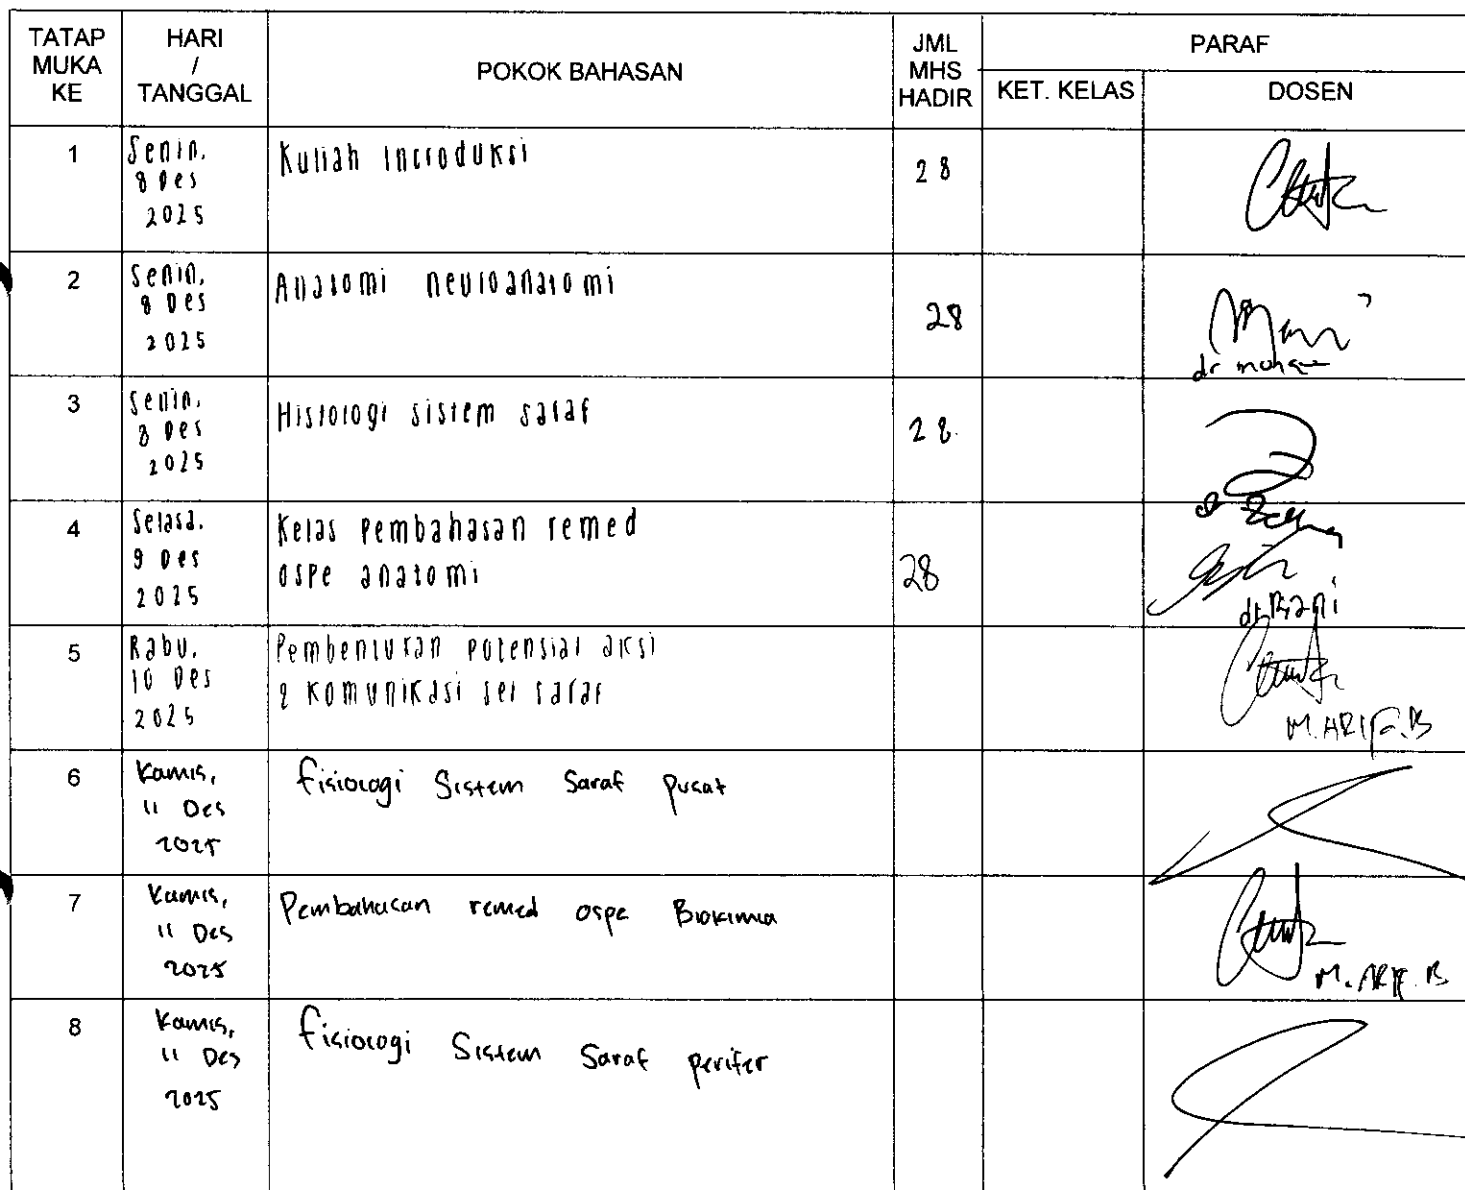 TATAP MUKA KE
HARI / TANGGAL
POKOK BAHASAN
JML MHS HADIR
PARAF
KET. KELAS
DOSEN
1
Senin,
8 Des
2025
Kuliah Introduksi
28
2
Senin,
8 Des
2025
Anatomi neuroanatomi
28
dr
3
Senin,
8 Des
2025
Histologi sistem saraf
28
4
Selasa,
9 Des
2025
Kelas Pembahasan remed
ospe anatomi
28
dr. Riani
5
Rabu,
10 Des
2025
Pembentukan potensial aksi
& komunikasi sel saraf
M. ARIF. B
6
Kamis,
11 Des
2025
fisiologi Sistem Saraf pusat
7
Kamis,
11 Des
2025
Pembahasan remed ospe Biokimia
M. ARIF. B
8
Kamis,
11 Des
2025
fisiologi Sistem Saraf perifer